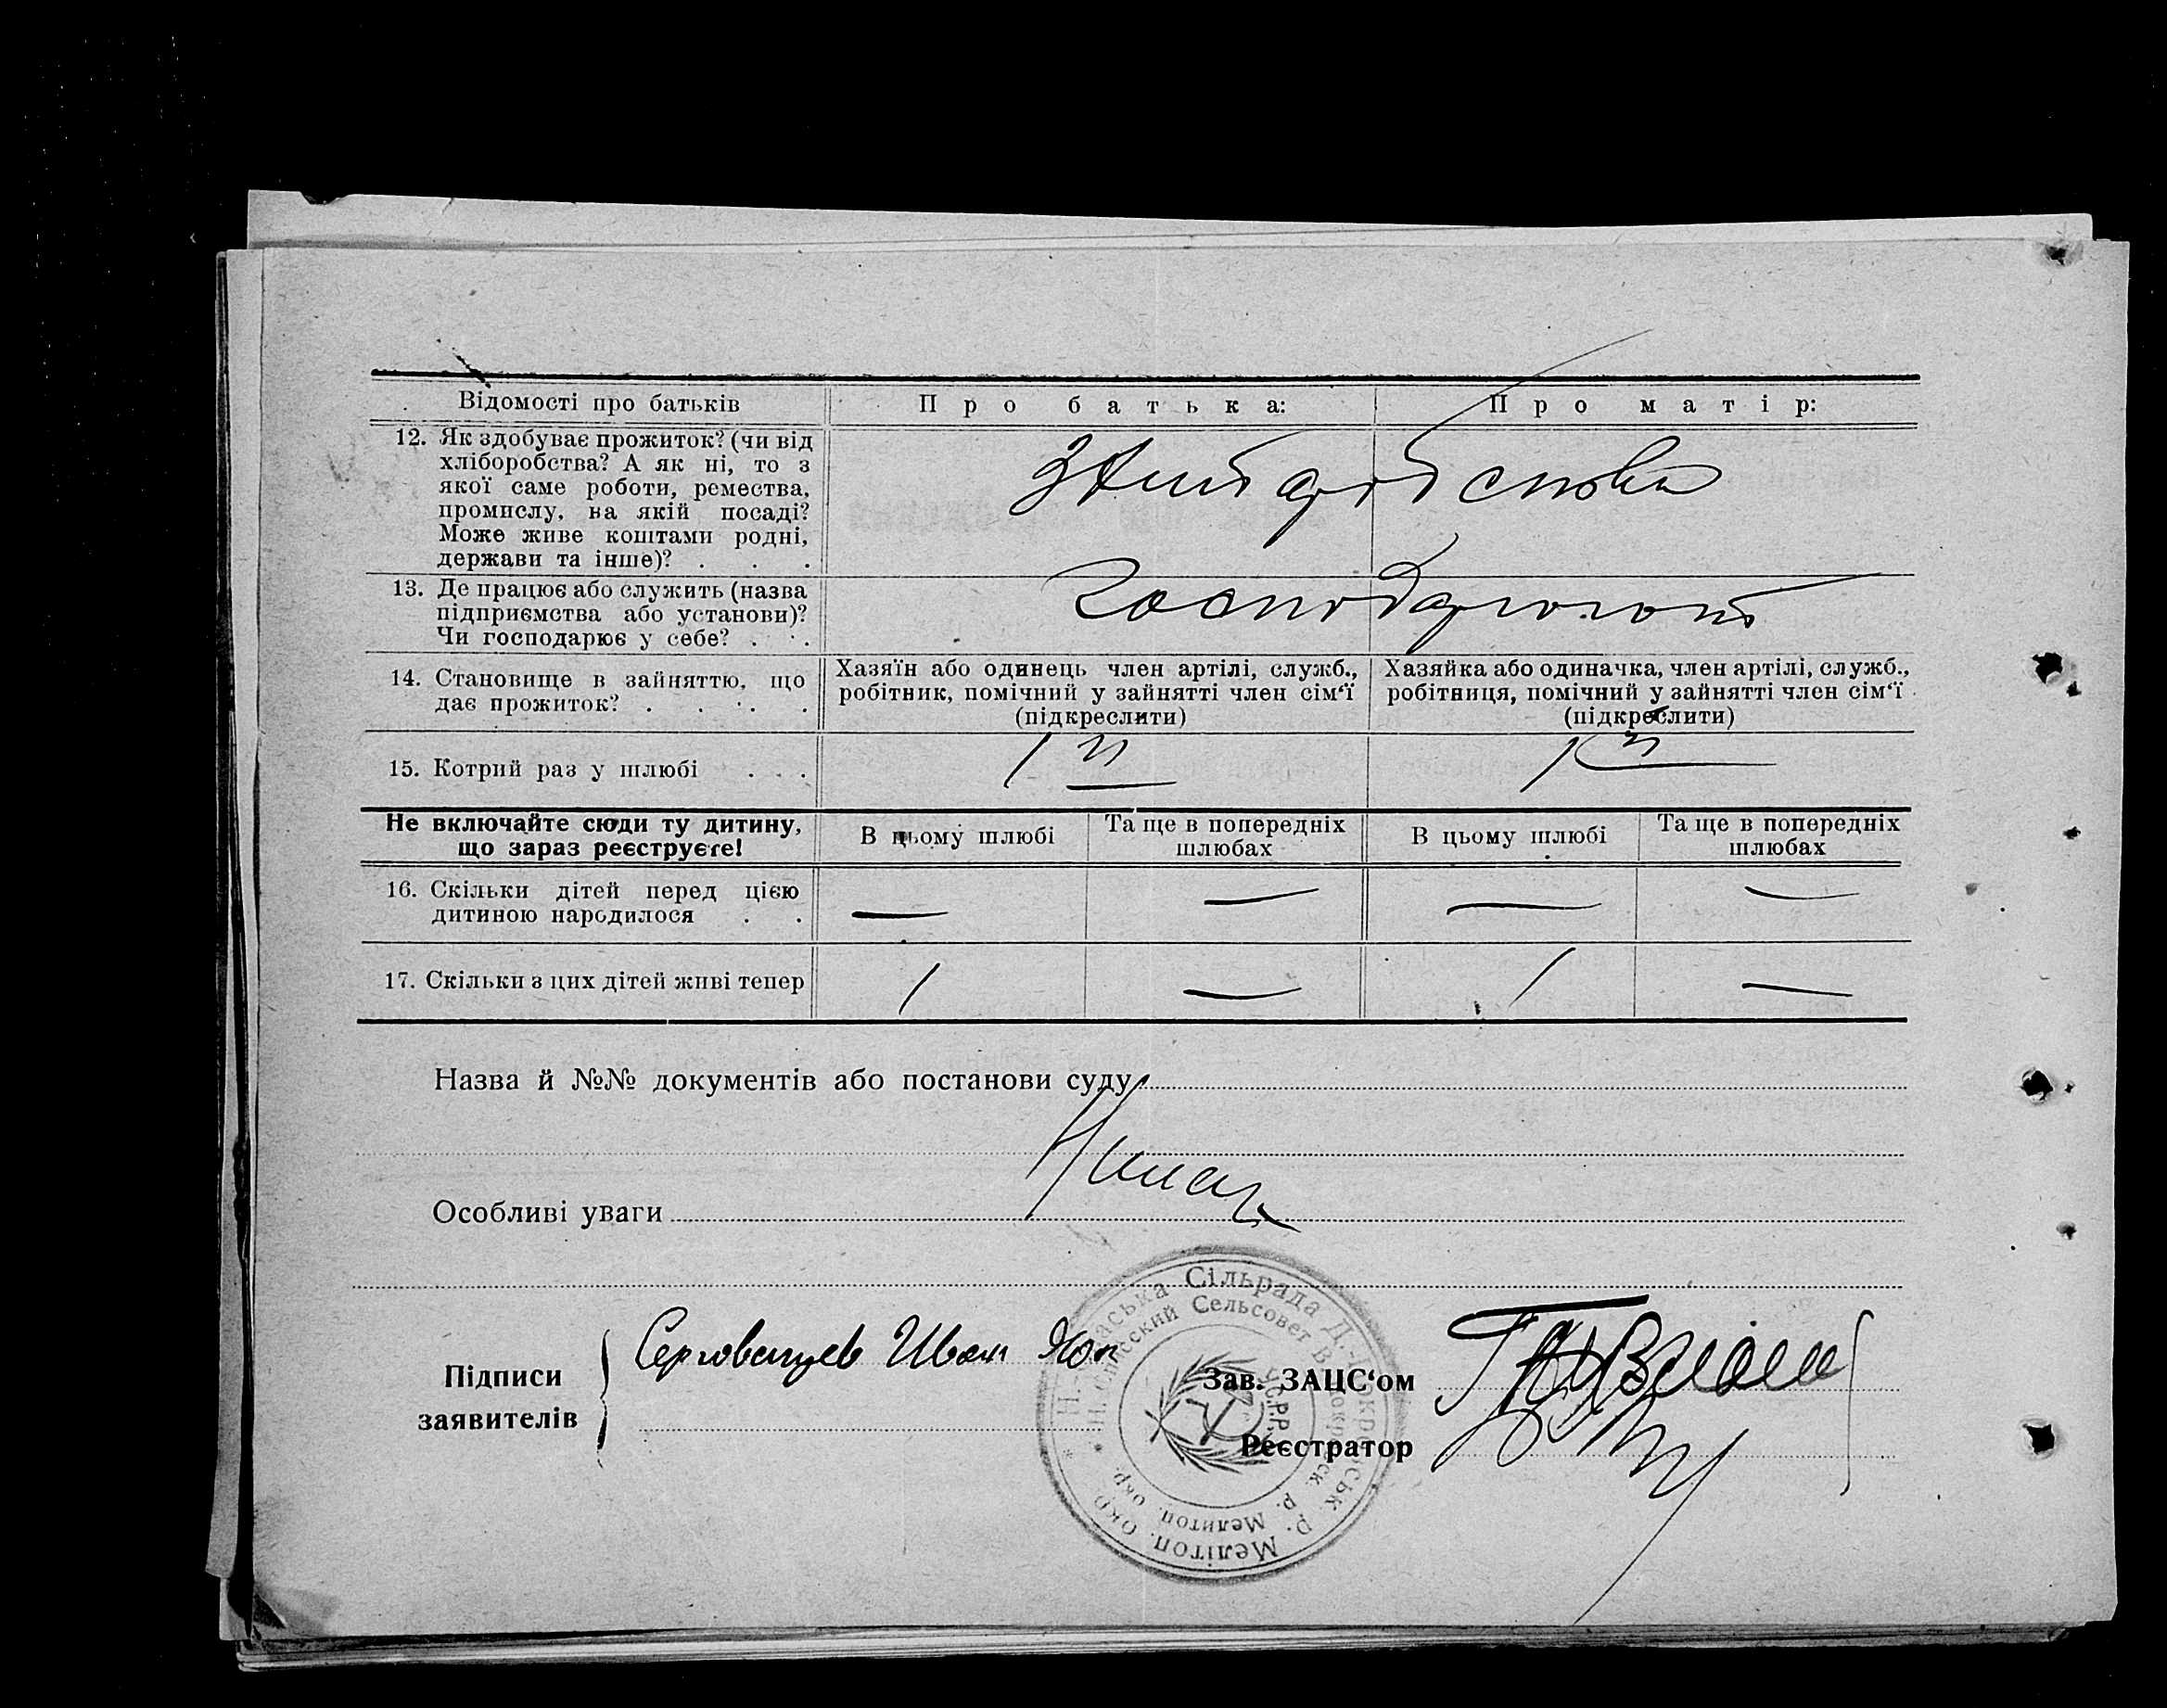 Відомості про батьків
Про батька:
Про матір:
12. Як здобуває прожиток? (чи від
хліборобства? А як ні, то з
якої саме роботи, ремества,
промислу, на якій посаді?
Може живе коштами родні,
держави та інше)? . . .
13. Де працює або служить (назва
підприємства або установи)?
Чи господарює у себе? . .
14. Становище в зайняттю, що
дає прожиток? . . . .
Хазяїн або одинець член артілі, служб.,
робітник, помічний у зайнятті член сім‘ї
(підкреслити)
Хазяйка або одиначка, член артілі, служб.,
робітниця, помічний у зайнятті член сім‘ї
(підкреслити)
15. Котрий раз у шлюбі . . .
1й
1й
Не включайте сюди ту дитину,
що зараз реєструєте!
В цьому шлюбі
Та ще в попередніх
шлюбах
В цьому шлюбі
Та ще в попередніх
шлюбах
16. Скільки дітей перед цією
дитиною народилося . .
— — — —
17. Скільки з цих дітей живі тепер
1 — 1 —
Назва й №№ документів або постанови суду
Немає
Особливі уваги
Підписи
заявителів
Иван
Зав. ЗАЦС‘ом
Реєстратор
Сільрада Д.-Покровськ. р. Мелітоп. окр.
Сельсовет В Покровск. р. Мелитоп. окр.
У.С.Р.Р.